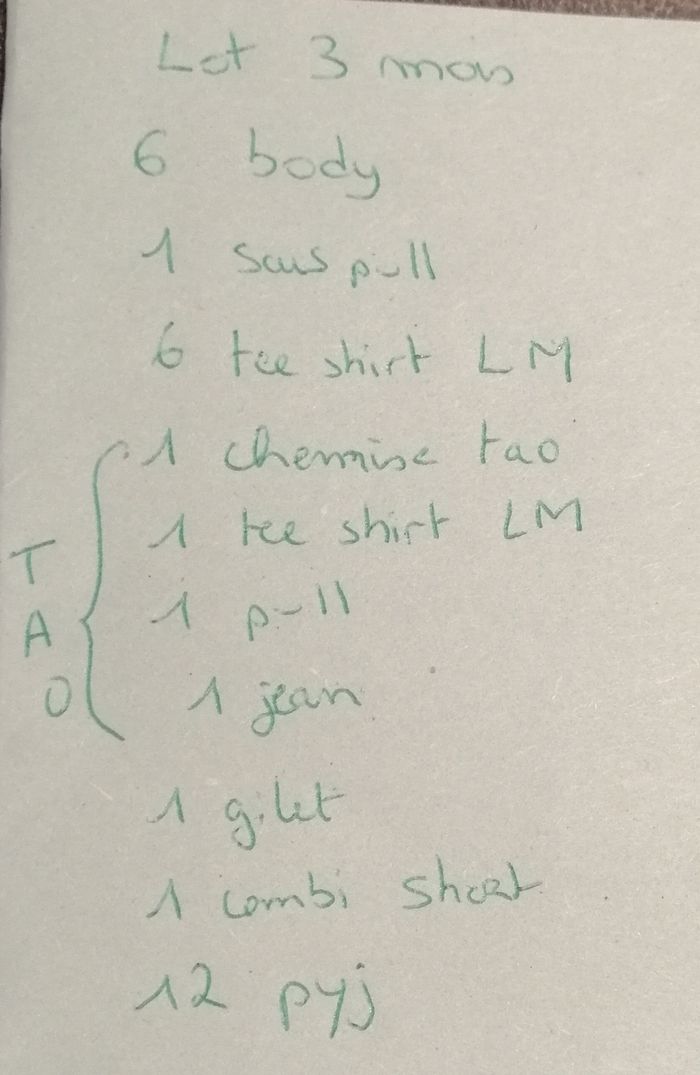 Lot 3 mois
6 body
1 sous pull
6 tee shirt LM
1 chemise tao
1 tee shirt LM
1 pull
1 jean
TAO
1 gilet
1 combi short
12 pyj